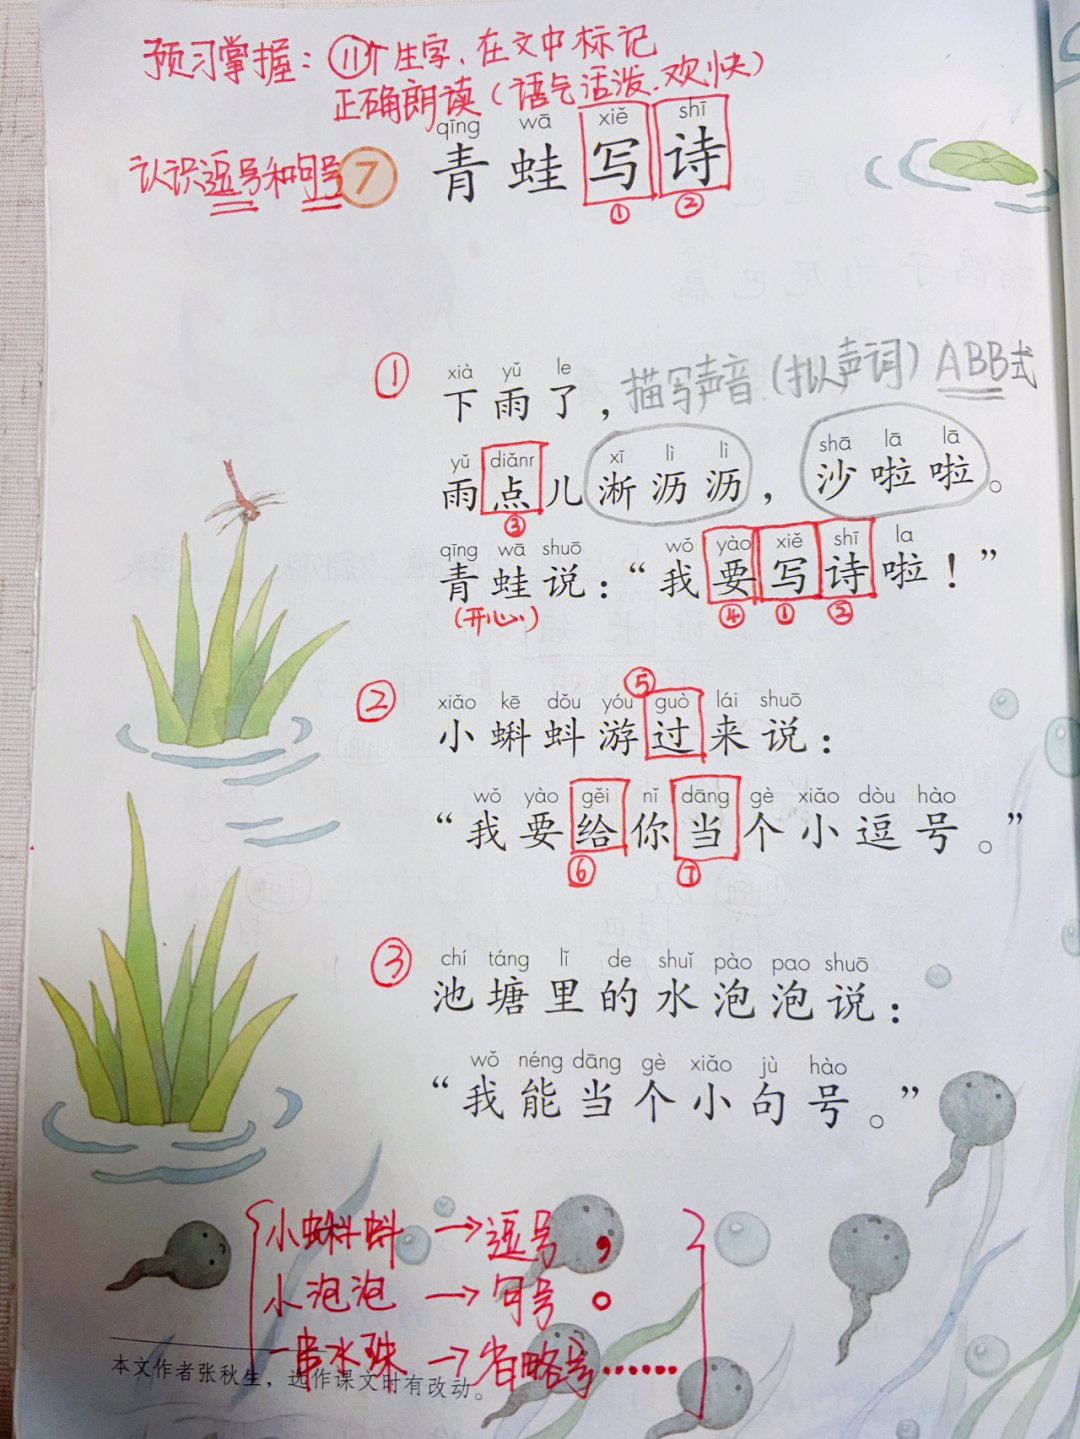 预习掌握：⑪个生字、在文中标记
正确朗读（语气活泼、欢快）
认识逗号和句号
qīng wā xiě shī
7 青蛙写诗
① ②
① xià yǔ le
下雨了，描写声音（拟声词）ABB式
yǔ diǎnr xī lì lì shā lā lā
雨点儿淅沥沥，沙啦啦。
③
qīng wā shuō wǒ yào xiě shī la
青蛙说：“我要写诗啦！”
（开心） ④ ① ②
⑤
② xiǎo kē dǒu yóu guò lái shuō
小蝌蚪游过来说：
wǒ yào gěi nǐ dāng gè xiǎo dòu hào
“我要给你当个小逗号。”
⑥ ⑦
③ chí táng lǐ de shuǐ pào pao shuō
池塘里的水泡泡说：
wǒ néng dāng gè xiǎo jù hào
“我能当个小句号。”
小蝌蚪→逗号，
小泡泡→句号。
一串水珠→省略号……
本文作者张秋生，选作课文时有改动。